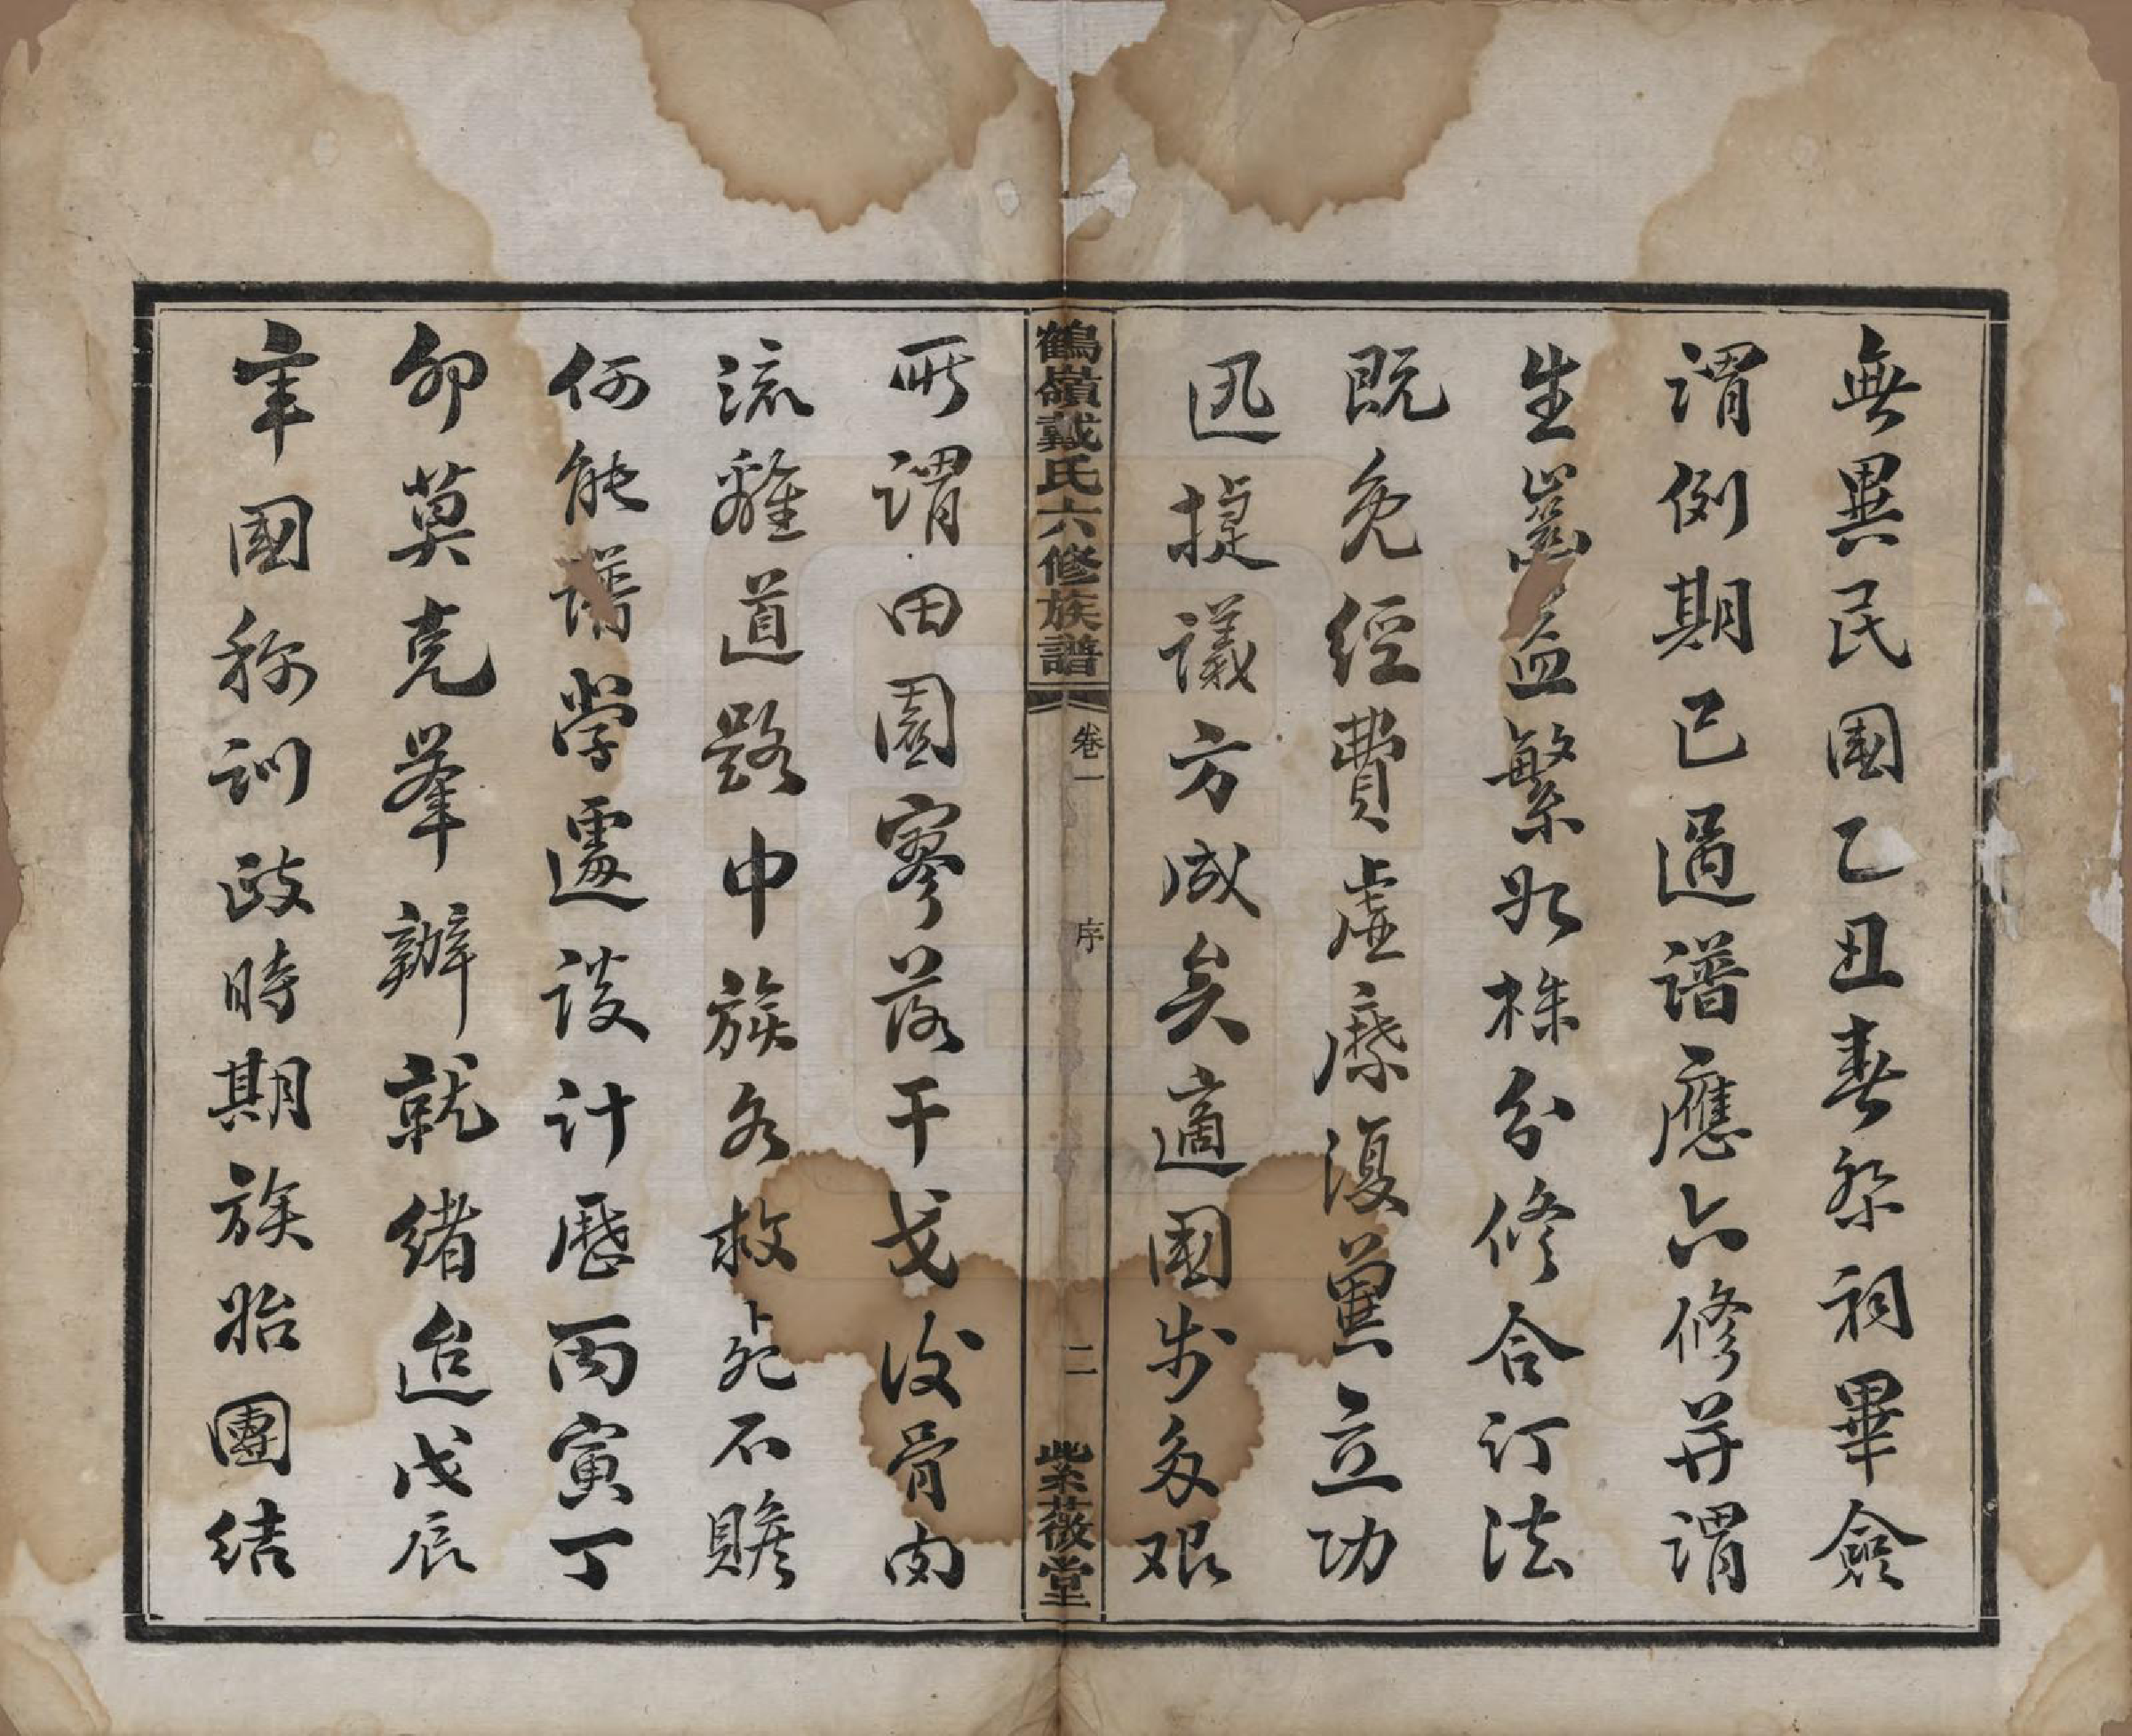 無異民國乙丑春祭祠畢僉
謂例期已過譜應六修并謂
生齒益繁如株分修合訂法
既免經費虛糜復黨立功
迅捷議方成矣適國步多艱
鶴嶺戴氏六修族譜 卷一 序 二 紫薇堂
所謂田園寥落干戈後骨肉
流離道路中族各救死不贍
何能譜學遽談計歷丙寅丁
卯莫克舉辦就緒迨戊辰
年國稱訓政時期族貽團結